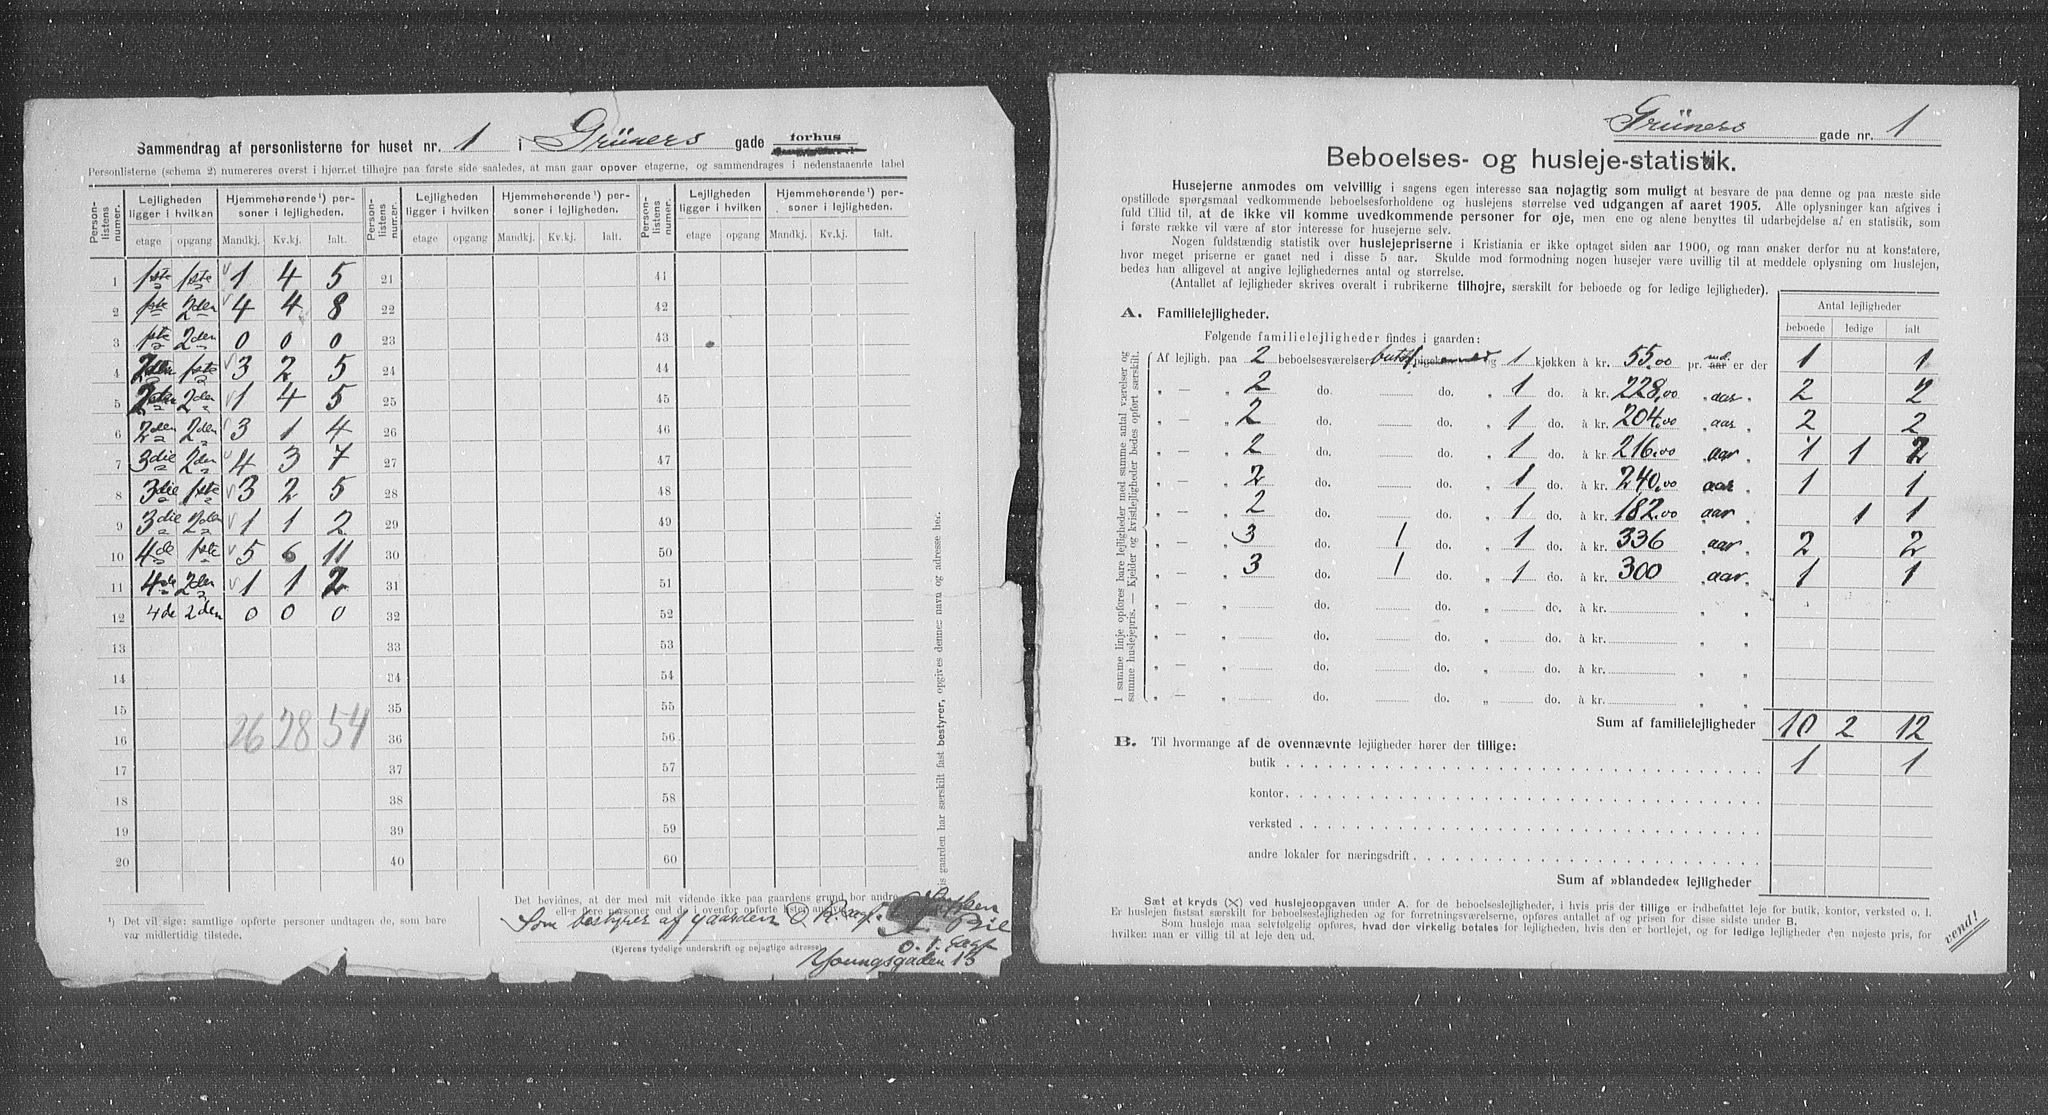 Sammendrag af personlisterne for huset nr. 1 i Grüners gade forhus
Personlisterne (schema 2) numereres øverst i hjørnet tilhøjre paa første side saaledes, at man gaar opover etagerne, og sammendrages i nedenstaaende tabel
Person-listens numer. Lejligheden ligger i hvilken Hjemmehørende¹) personer i lejligheden. Person-listens numer. Lejligheden ligger i hvilken Hjemmehørende¹) personer i lejligheden. Person-listens numer. Lejligheden ligger i hvilken Hjemmehørende¹) personer i lejligheden.
etage opgang Mandkj. Kv.kj. Ialt. etage opgang Mandkj. Kv.kj. Ialt. etage opgang Mandkj. Kv.kj. Ialt.
1 1ste 1ste 1 4 5 21 41
2 1ste 2den 4 4 8 22 42
3 1ste 2den 0 0 0 23 43
4 2den 1ste 3 2 5 24 44
5 2den 2den 1 4 5 25 45
6 2den 2den 3 1 4 26 46
7 3die 2den 4 3 7 27 47
8 3die 1ste 3 2 5 28 48
9 3die 2den 1 1 2 29 49
10 4de 1ste 5 6 11 30 50
11 4de 2den 1 1 2 31 51
12 4de 2den 0 0 0 32 52
13 33 53
14 34 54
15 35 55
26 28 54
16 36 56
17 37 57
18 38 58
19 39 59
20 40 60
¹) Det vil sige: samtlige opførte personer undtagen de, som bare
var midlertidig tilstede.
Det bevidnes, at der med mit vidende ikke paa gaardens grund bor andre
eller flere personer end de i ovenfor opførte lister
Som bestyrer af gaarden
(Ejerens tydelige underskrift og nøjagtige adresse)
Youngsgaden 13
is gaarden har særskilt fast bestyrer, opgives dennes navn og adresse her.
Grüners gade nr. 1
Beboelses- og husleje-statistik.
Husejerne anmodes om velvillig i sagens egen interesse saa nøjagtig som muligt at besvare de paa denne og paa næste side
opstillede spørgsmaal vedkommende beboelsesforholdene og huslejens størrelse ved udgangen af aaret 1905. Alle oplysninger kan afgives i
fuld tillid til, at de ikke vil komme uvedkommende personer for øje, men ene og alene benyttes til udarbejdelse af en statistik, som
i første række vil være af stor interesse for husejerne selv.
Nogen fuldstændig statistik over huslejepriserne i Kristiania er ikke optaget siden aar 1900, og man ønsker derfor nu at konstatere,
hvor meget priserne er gaaet ned i disse 5 aar. Skulde mod formodning nogen husejer være uvillig til at meddele oplysning om huslejen,
bedes han alligevel at angive lejlighedernes antal og størrelse.
(Antallet af lejligheder skrives overalt i rubrikerne tilhøjre, særskilt for beboede og for ledige lejligheder).
Antal lejligheder
beboede ledige ialt
A. Familielejligheder.
Følgende familielejligheder findes i gaarden:
I samme linje opføres bare lejligheder med samme antal værelser og
samme huslejepris. — Kjelder og kvistlejligheder bedes opført særskilt.
Af lejligh. paa 2 beboelsesværelser og 1 kjøkken à kr. 55.00 pr. md. er der 1 1
„ — 2 do. do. „ 1 do. à kr. 228,00 „ aar „ 2 2
„ — 2 do. do. „ 1 do. à kr. 204.00 „ aar „ 2 2
„ — 2 do. do. „ 1 do. à kr. 216.00 „ aar „ 1 1 2
„ — 2 do. do. „ 1 do. à kr. 240,00 „ aar „ 1 1
„ — 2 do. do. „ 1 do. à kr. 182.00 „ aar „ 1 1
„ — 3 do. 1 do. „ 1 do. à kr. 336 „ aar „ 2 2
„ — 3 do. 1 do. „ 1 do. à kr. 300 „ aar „ 1 1
„ — do. do. „ do. à kr. „ „
„ — do. do. „ do. à kr. „ „
„ — do. do. „ do. à kr. „ „
„ — do. do. „ do. à kr. „ „
Sum af familielejligheder 10 2 12
B. Til hvormange af de ovennævnte lejligheder hører der tillige:
butik 1 1
kontor
verksted
andre lokaler for næringsdrift
Sum af »blandede« lejligheder
Sæt et kryds (X) ved huslejeopgaven under A. for de beboelseslejligheder, i hvis pris der tillige er indbefattet leje for butik, kontor, verksted o. l.
Er huslejen fastsat særskilt for beboelseslejligheden og for forretningsværelserne, opføres antallet af og prisen for disse sidste under B.
Som husleje maa selvfølgelig opføres, hvad der virkelig betales for lejligheden, hvis den er bortlejet, og for ledige lejligheder den nøjeste pris, for
hvilken man er villig til at leje den ud.
vend!